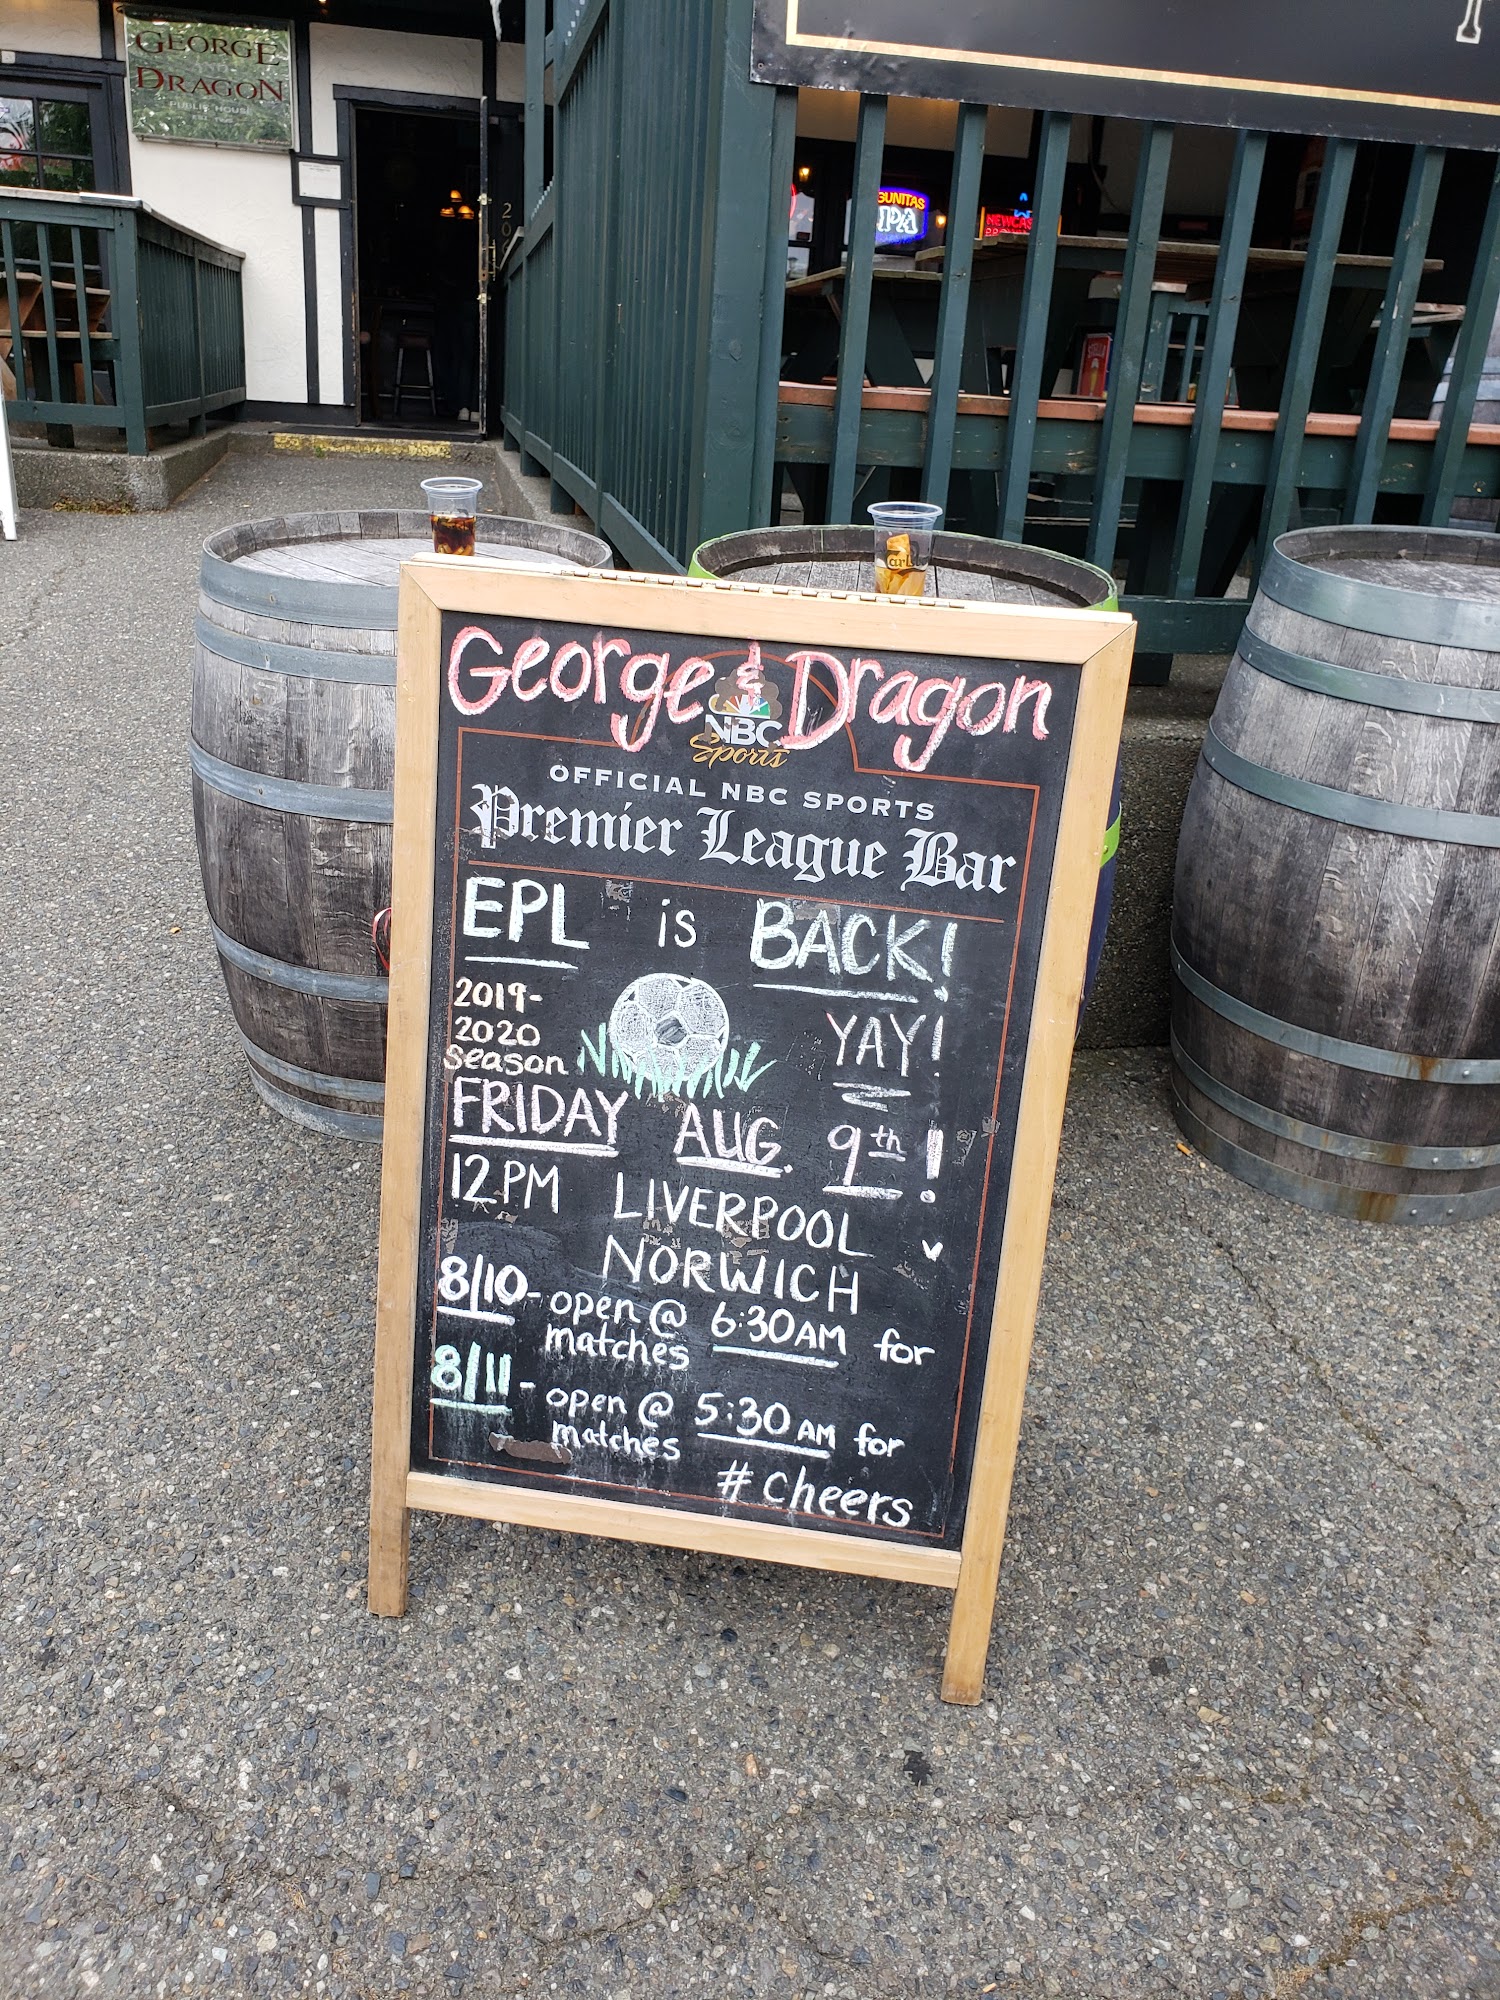 GEORGE
DRAGON
PUBLIC HOUSE
206
IPA
George & Dragon
NBC
Sports
OFFICIAL NBC SPORTS
Premier League Bar
EPL is BACK!
2019-
2020
season
YAY!
FRIDAY AUG. 9th!
12PM LIVERPOOL v
NORWICH
8/10 - open @ 6:30AM for
matches
8/11 - open @ 5:30AM for
matches
# cheers